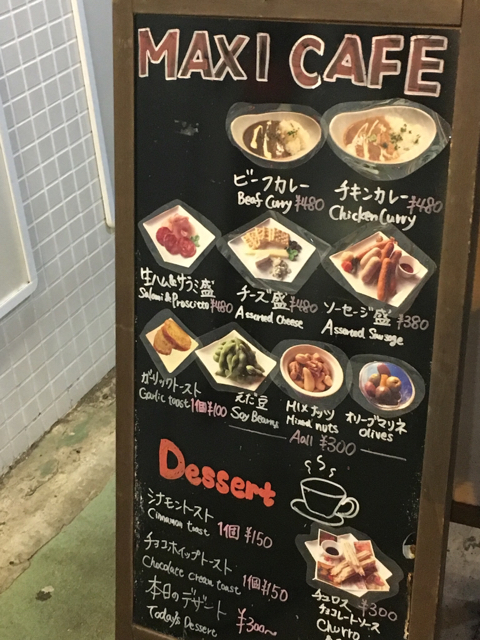 MAXI CAFE
ビーフカレー
Beef Curry ¥480
チキンカレー ¥480
Chicken Curry
生ハム&サラミ盛
Salami & Proscitto ¥480
チーズ盛 ¥480
Assorted Cheese
ソーセージ盛 ¥380
Assorted Sausage
ガーリックトースト
Garlic toast 1個 ¥100
えだ豆
Soy Beans
MIXナッツ
Mixed nuts
オリーブマリネ
olives
All ¥300
Dessert
シナモントースト
Cinnamon toast 1個 ¥150
チョコホイップトースト
Chocolate cream toast 1個 ¥150
本日のデザート
Today's Dessert ¥300~
チュロス ¥300
チョコレートソース
Churro